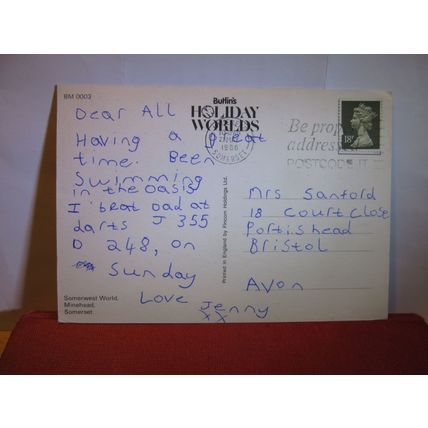 BM 0003
Butlin's
HOLIDAY
WORLDS
Dear All
Having a great
time. Been
Swimming
in the oasis
I beat Dad at
darts J 355
D 248, on
Sunday
Love Jenny
xx
Somerwest World,
Minehead,
Somerset.
Printed in England by Fincom Holdings Ltd.
SOMERSET
Be prop
address
POSTCODE IT
18P
Mrs Sanford
18 Court Close
Portishead
Bristol
Avon